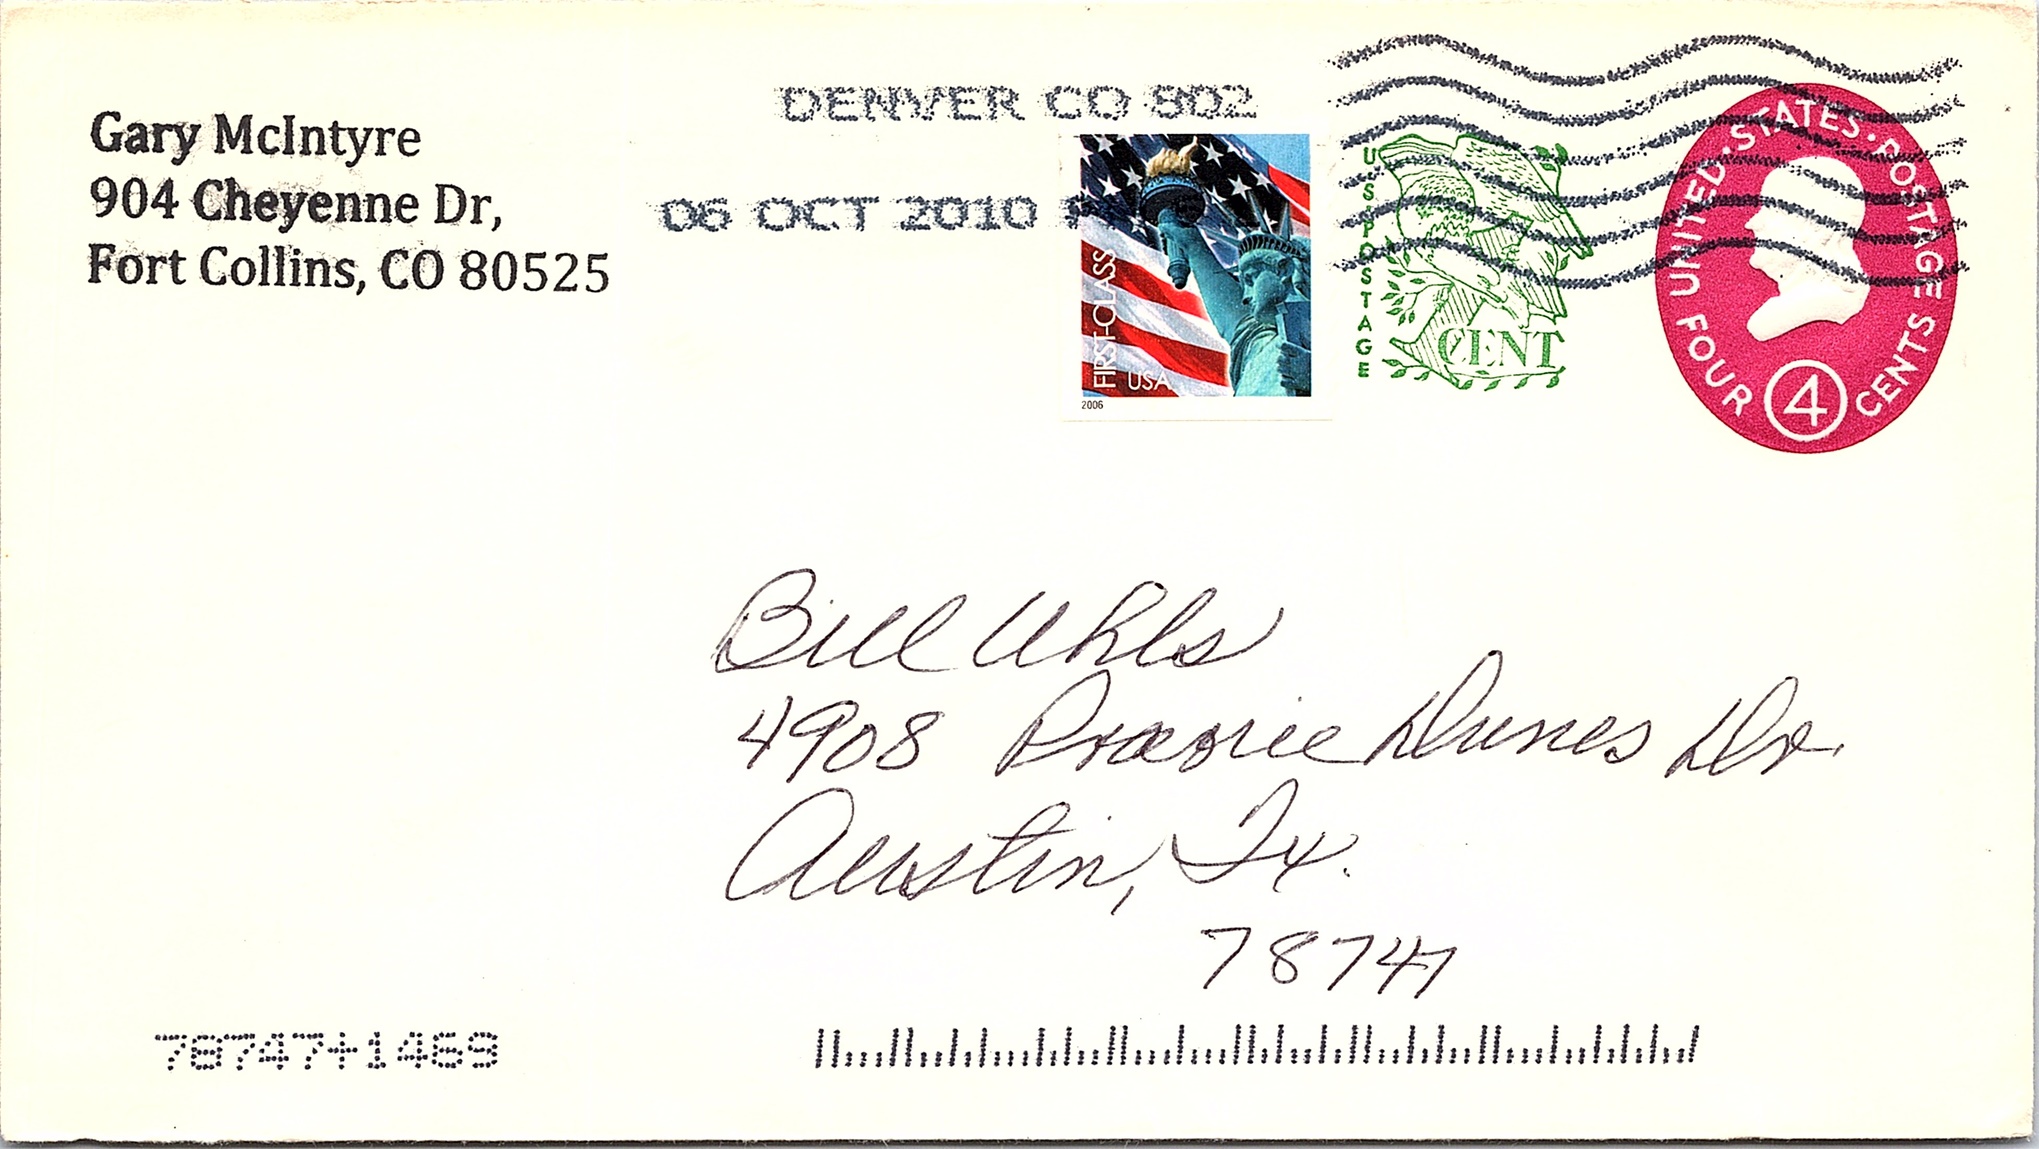 Gary McIntyre
904 Cheyenne Dr,
Fort Collins, CO 80525
DENVER CO 802
06 OCT 2010
FIRST-CLASS
USA
2006
U.S. POSTAGE
CENT
UNITED · STATES · POSTAGE
FOUR 4 CENTS
Bill Uhls
4908 Prairie Dunes Dr.
Austin, Tx.
78747
78747+1469